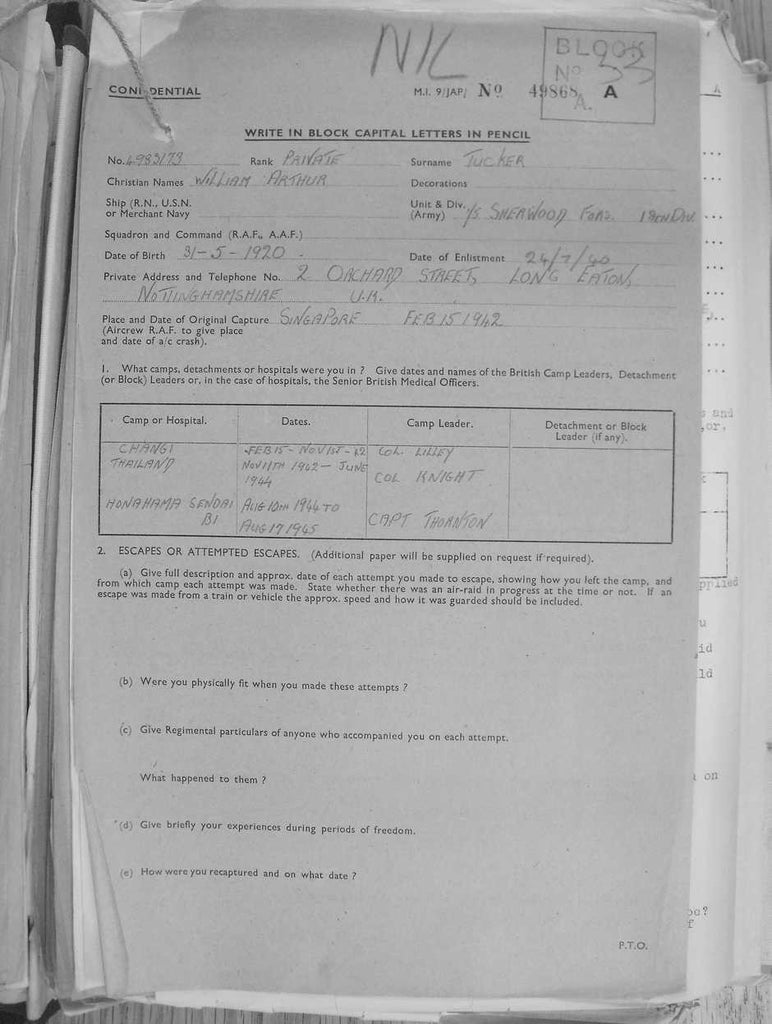 NIL
BLOCK
No 33
CONFIDENTIAL
M.I. 9/JAP/ No 49868 A
A.
WRITE IN BLOCK CAPITAL LETTERS IN PENCIL
No. 4983173 Rank PRIVATE Surname TUCKER
Christian Names WILLIAM ARTHUR Decorations
Ship (R.N., U.S.N. or Merchant Navy
Unit & Div. (Army) 1/5 SHERWOOD FORS. 18TH DIV.
Squadron and Command (R.A.F., A.A.F.)
Date of Birth 31-5-1920 Date of Enlistment 24/7/40
Private Address and Telephone No. 2 ORCHARD STREET, LONG EATON,
NOTTINGHAMSHIRE U.K.
Place and Date of Original Capture SINGAPORE FEB 15 1942
(Aircrew R.A.F. to give place
and date of a/c crash).
1. What camps, detachments or hospitals were you in ? Give dates and names of the British Camp Leaders, Detachment
(or Block) Leaders or, in the case of hospitals, the Senior British Medical Officers.
Camp or Hospital. Dates. Camp Leader. Detachment or Block
Leader (if any).
CHANGI FEB 15 - NOV 1ST - 42 COL. LILLEY
THAILAND NOV 11TH 1942 - JUNE
1944 COL KNIGHT
HONAHAMA SENDAI AUG 10TH 1944 TO
BI AUG 17 1945 CAPT THORNTON
2. ESCAPES OR ATTEMPTED ESCAPES. (Additional paper will be supplied on request if required).
(a) Give full description and approx. date of each attempt you made to escape, showing how you left the camp, and
from which camp each attempt was made. State whether there was an air-raid in progress at the time or not. If an
escape was made from a train or vehicle the approx. speed and how it was guarded should be included.
(b) Were you physically fit when you made these attempts ?
(c) Give Regimental particulars of anyone who accompanied you on each attempt.
What happened to them ?
(d) Give briefly your experiences during periods of freedom.
(e) How were you recaptured and on what date ?
P.T.O.